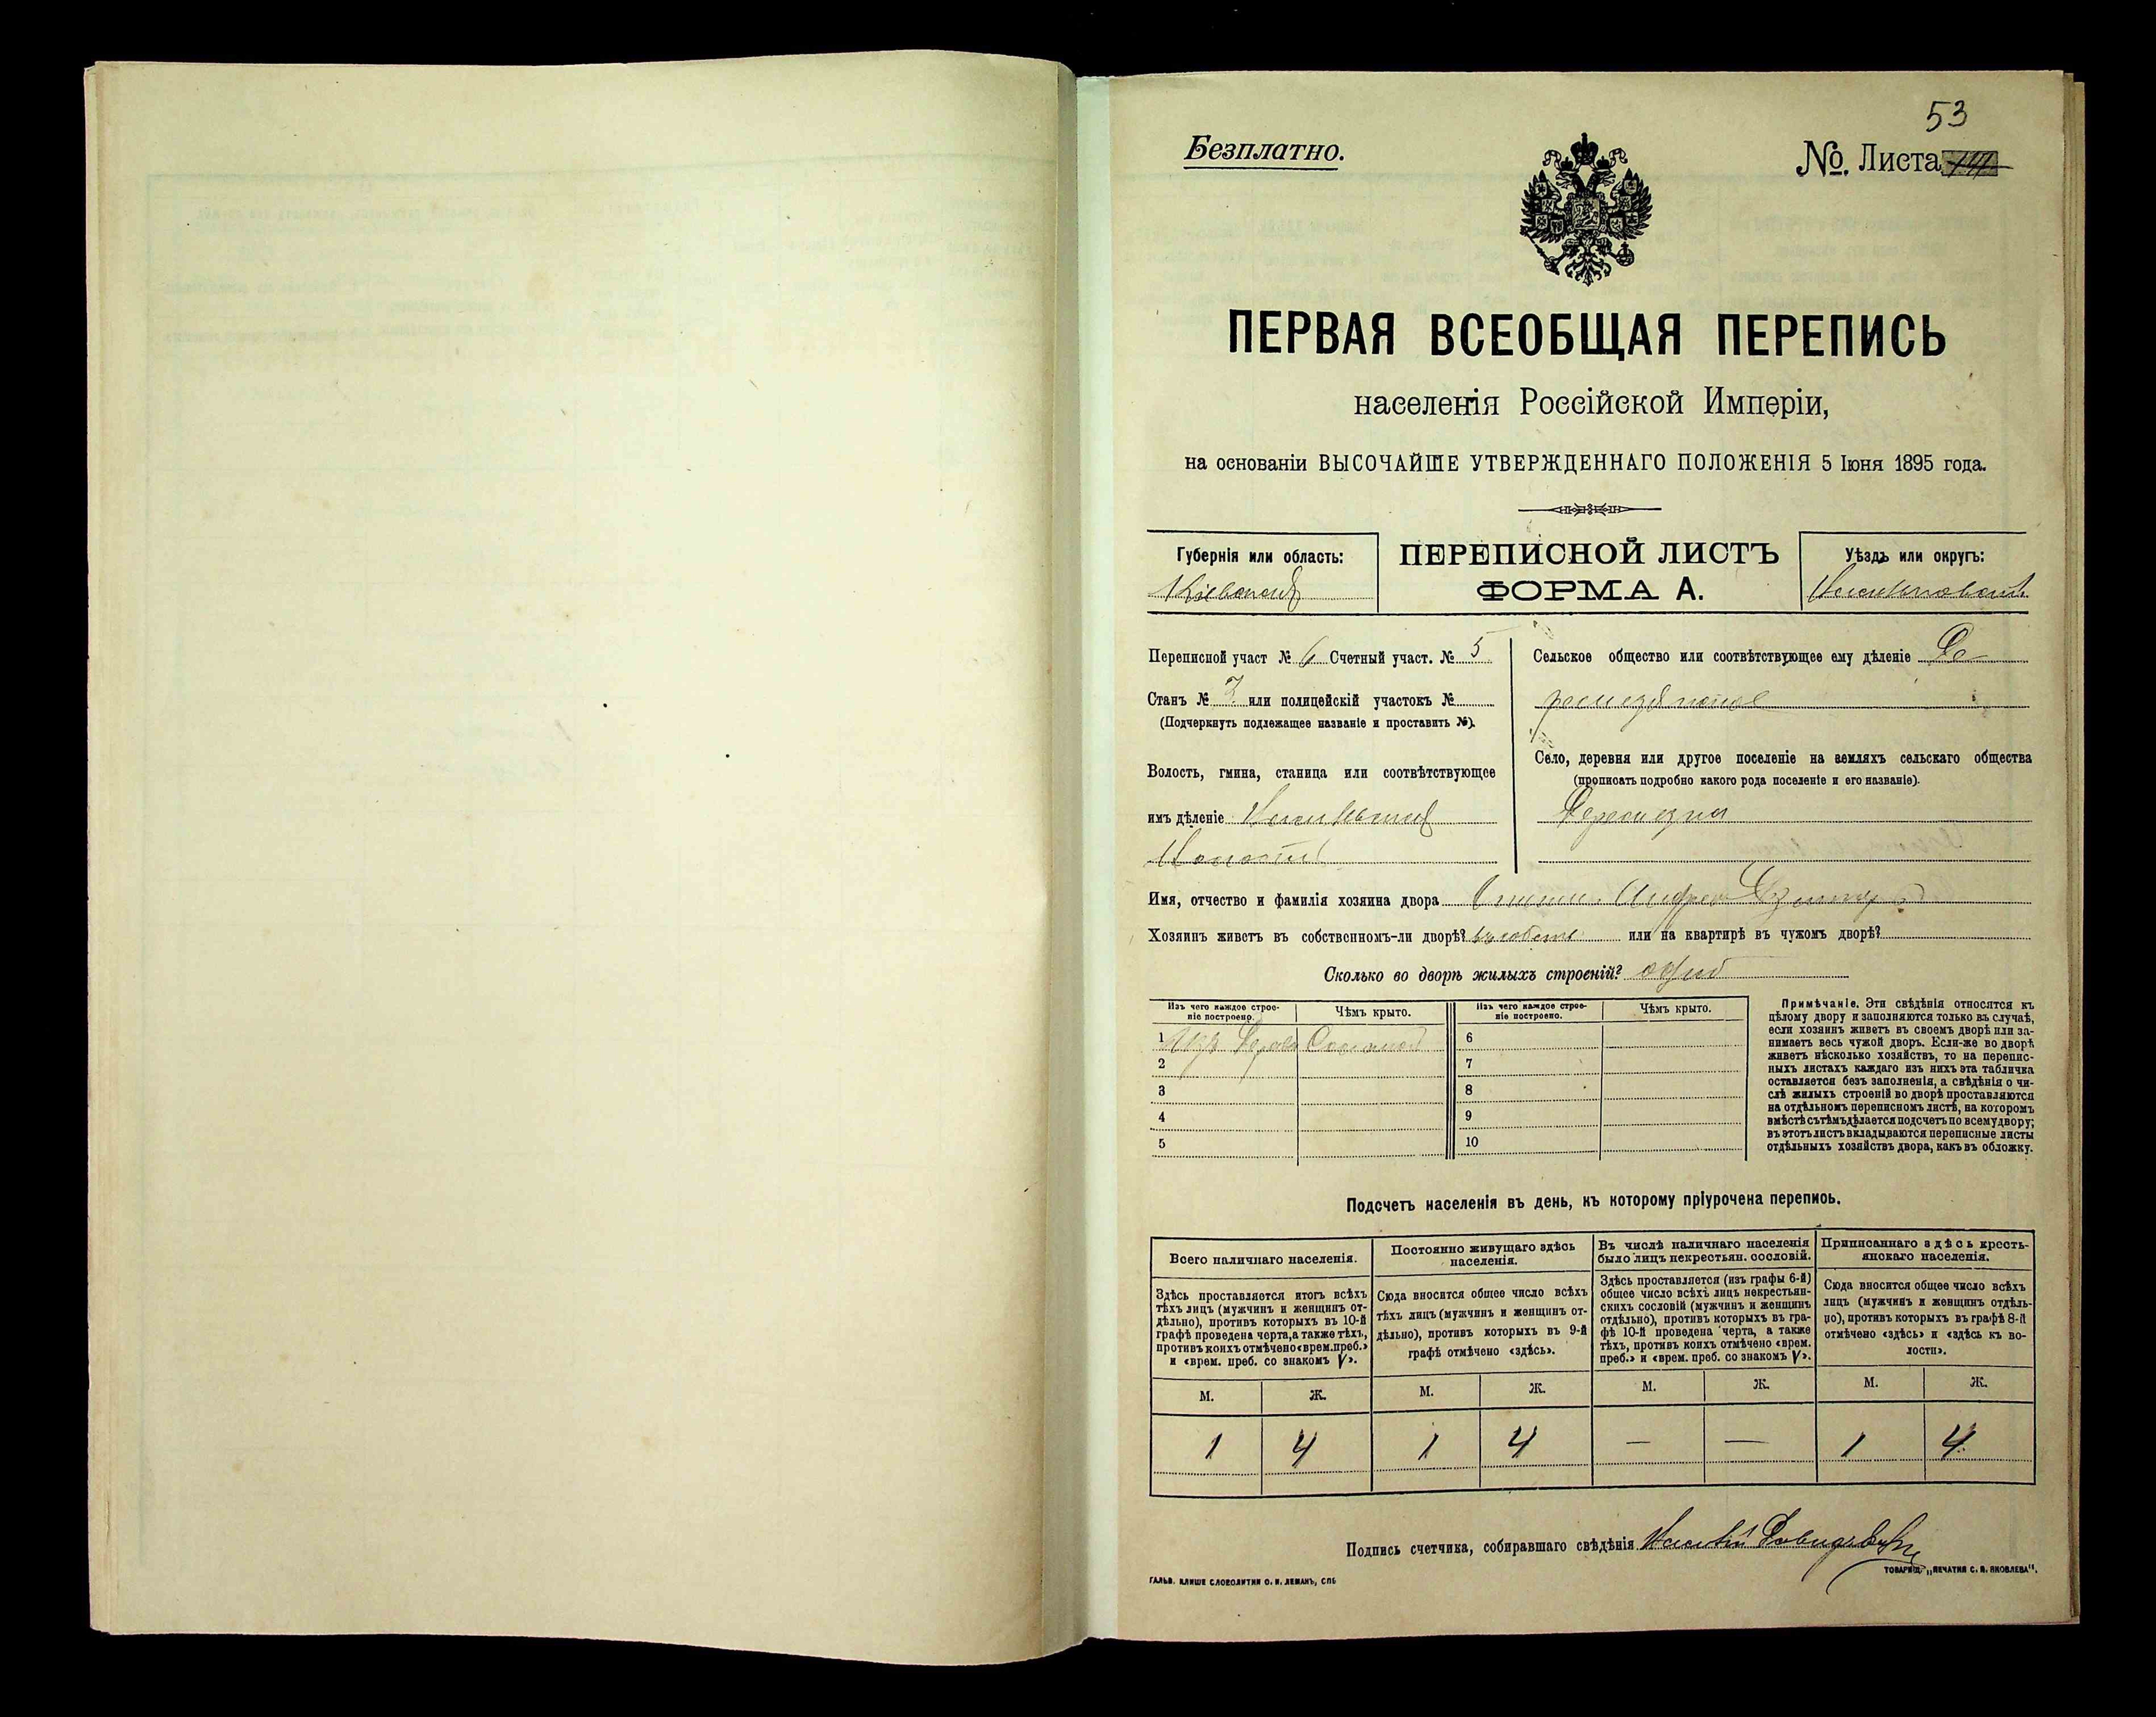 53
Безплатно.
№. Листа
ПЕРВАЯ ВСЕОБЩАЯ ПЕРЕПИСЬ
населенія Россійской Имперіи,
на основаніи ВЫСОЧАЙШЕ УТВЕРЖДЕННАГО ПОЛОЖЕНІЯ 5 Іюня 1895 года.
Губернія или область:
Кіевская
ПЕРЕПИСНОЙ ЛИСТЪ
ФОРМА А.
Уѣздъ или округъ:
Переписной участ № 6 Счетный участ. № 5
Станъ № 2 или полицейскій участокъ №
(Подчеркнуть подлежащее названіе и проставить №).
Волость, гмина, станица или соотвѣтствующее
имъ дѣленіе
Сельское общество или соотвѣтствующее ему дѣленіе
Село, деревня или другое поселеніе на земляхъ сельскаго общества
(прописать подробно какого рода поселеніе и его названіе).
Имя, отчество и фамилія хозяина двора
Хозяинъ живетъ въ собственномъ-ли дворѣ? или на квартирѣ въ чужомъ дворѣ?
Сколько во дворѣ жилыхъ строеній? одно
Изъ чего каждое строе-
ніе построено.
Чѣмъ крыто.
Изъ чего каждое строе-
ніе построено.
Чѣмъ крыто.
1 Изъ дерева Соломой
2
3
4
5
6
7
8
9
10
Примѣчаніе. Эти свѣдѣнія относятся къ
цѣлому двору и заполняются только въ случаѣ,
если хозяинъ живетъ въ своемъ дворѣ или за-
нимаетъ весь чужой дворъ. Если-же во дворѣ
живетъ нѣсколько хозяйствъ, то на перепис-
ныхъ листахъ каждаго изъ нихъ эта табличка
оставляется безъ заполненія, а свѣдѣнія о чи-
слѣ жилыхъ строеній во дворѣ проставляются
на отдѣльномъ переписномъ листѣ, на которомъ
вмѣстѣ съ тѣмъ дѣлается подсчетъ по всему двору;
въ этотъ листъ вкладываются переписные листы
отдѣльныхъ хозяйствъ двора, какъ въ обложку.
Подсчетъ населенія въ день, къ которому пріурочена перепись.
Всего наличнаго населенія.
Здѣсь проставляется итогъ всѣхъ
тѣхъ лицъ (мужчинъ и женщинъ от-
дѣльно), противъ которыхъ въ 10-й
графѣ проведена черта, а также тѣхъ,
противъ коихъ отмѣчено «врем. преб.»
и «врем. преб. со знакомъ V».
Постоянно живущаго здѣсь
населенія.
Сюда вносится общее число всѣхъ
тѣхъ лицъ (мужчинъ и женщинъ от-
дѣльно), противъ которыхъ въ 9-й
графѣ отмѣчено «здѣсь».
Въ числѣ наличнаго населенія
было лицъ некрестьян. сословій.
Здѣсь проставляется (изъ графы 6-й)
общее число всѣхъ лицъ некрестьян-
скихъ сословій (мужчинъ и женщинъ
отдѣльно), противъ которыхъ въ гра-
фѣ 10-й проведена черта, а также
тѣхъ, противъ коихъ отмѣчено «врем.
преб.» и «врем. преб. со знакомъ V».
Приписаннаго здѣсь кресть-
янскаго населенія.
Сюда вносится общее число всѣхъ
лицъ (мужчинъ и женщинъ отдѣль-
но), противъ которыхъ въ графѣ 8-й
отмѣчено «здѣсь» и «здѣсь къ во-
лости».
М. Ж. М. Ж. М. Ж. М. Ж.
1 4 1 4 — — 1 4
Подпись счетчика, собиравшаго свѣдѣнія
ГАЛЬВ. КЛИШЕ СЛОВОЛИТНИ О. И. ЛЕМАНЪ, СПБ
ТОВАРИЩ. „ПЕЧАТНЯ С. П. ЯКОВЛЕВА".